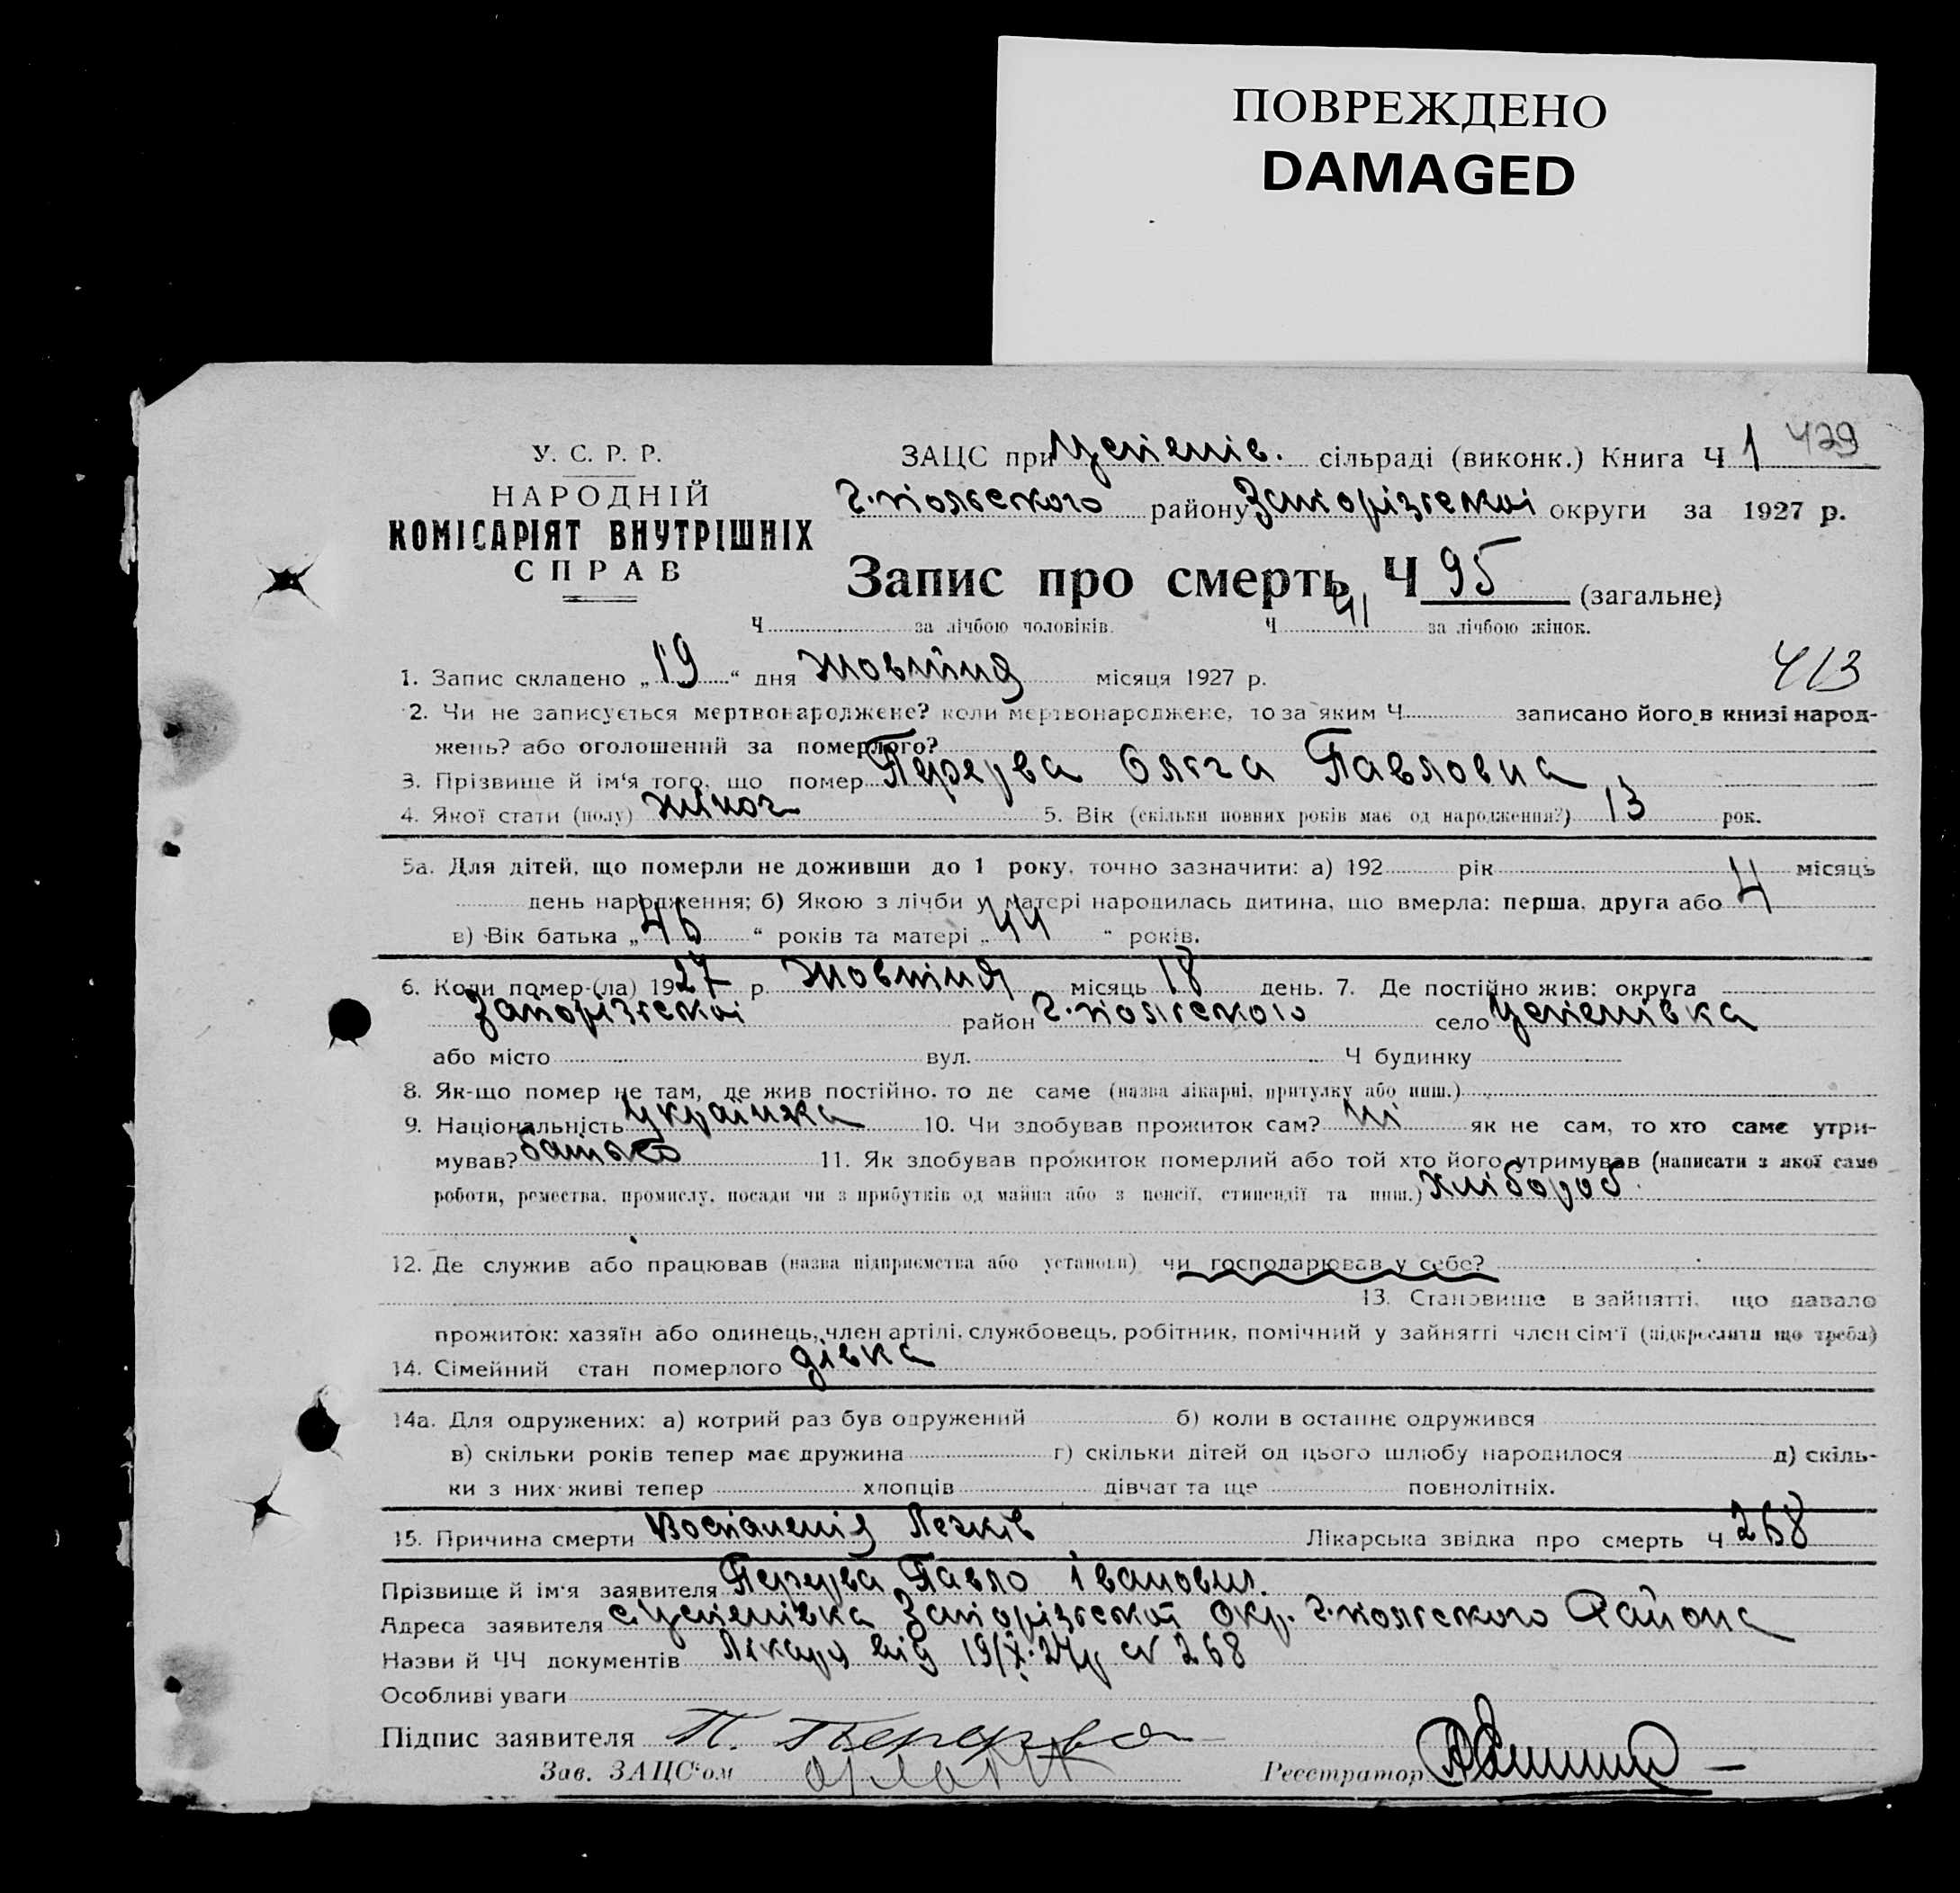 ПОВРЕЖДЕНО
DAMAGED
У. С. Р. Р.
НАРОДНІЙ
КОМІСАРІЯТ ВНУТРІШНІХ
СПРАВ
ЗАЦС при Успенів. сільраді (виконк.) Книга Ч 1 429
Г.-Польского району Запорізської округи за 1927 р.
Запис про смерть Ч 95 (загальне)
Ч за лічбою чоловіків. Ч 41 за лічбою жінок.
413
1. Запис складено „19“ дня Жовтня місяця 1927 р.
2. Чи не записується мертвонароджене? коли мертвонароджене, то за яким Ч записано його в книзі народ-
жень? або оголошений за померлого?
3. Прізвище й ім‘я того, що помер Перерва Ольга Павловна
4. Якої стати (полу) жіноч 5. Вік (скільки повних років має од народження?) 13 рок.
5а. Для дітей, що померли не доживши до 1 року, точно зазначити: а) 192 рік місяць
день народження; б) Якою з лічби у матері народилась дитина, що вмерла: перша, друга або 4
в) Вік батька „46“ років та матері „44“ років.
6. Коли помер-(ла) 1927 р. Жовтня місяць 18 день. 7. Де постійно жив: округа
Запорізської район Г.-Польського село Успенівка
або місто вул. Ч будинку
8. Як-що помер не там, де жив постійно, то де саме (назва лікарні, притулку або инш.)
9. Національність українка 10. Чи здобував прожиток сам? ні як не сам, то хто саме утри-
мував? батько 11. Як здобував прожиток померлий або той хто його утримував (написати з якої само
роботи, ремества, промислу, посади чи з прибутків од майна або з пенсії, стипендії та инш.) хлібороб.
12. Де служив або працював (назва підприємства або установи) чи господарював у себе?
13. Становище в зайнятті, що давало
прожиток: хазяїн або одинець, член артілі, службовець, робітник, помічний у зайнятті член сім‘ї (підкреслити що треба)
14. Сімейний стан померлого дівка
14а. Для одружених: а) котрий раз був одружений б) коли в останнє одружився
в) скільки років тепер має дружина г) скільки дітей од цього шлюбу народилося д) скіль-
ки з них живі тепер хлопців дівчат та ще повнолітніх.
15. Причина смерти Воспаленія Легків Лікарська звідка про смерть ч 268
Прізвище й ім‘я заявителя Перерва Павло Іванович.
Адреса заявителя с. Успенівка Запорізської Окр. Г.-Польського Района
Назви й ЧЧ документів Лікаря від 19/X-27р № 268
Особливі уваги
Підпис заявителя П. Перерва
Зав. ЗАЦС‘ом
Реєстратор